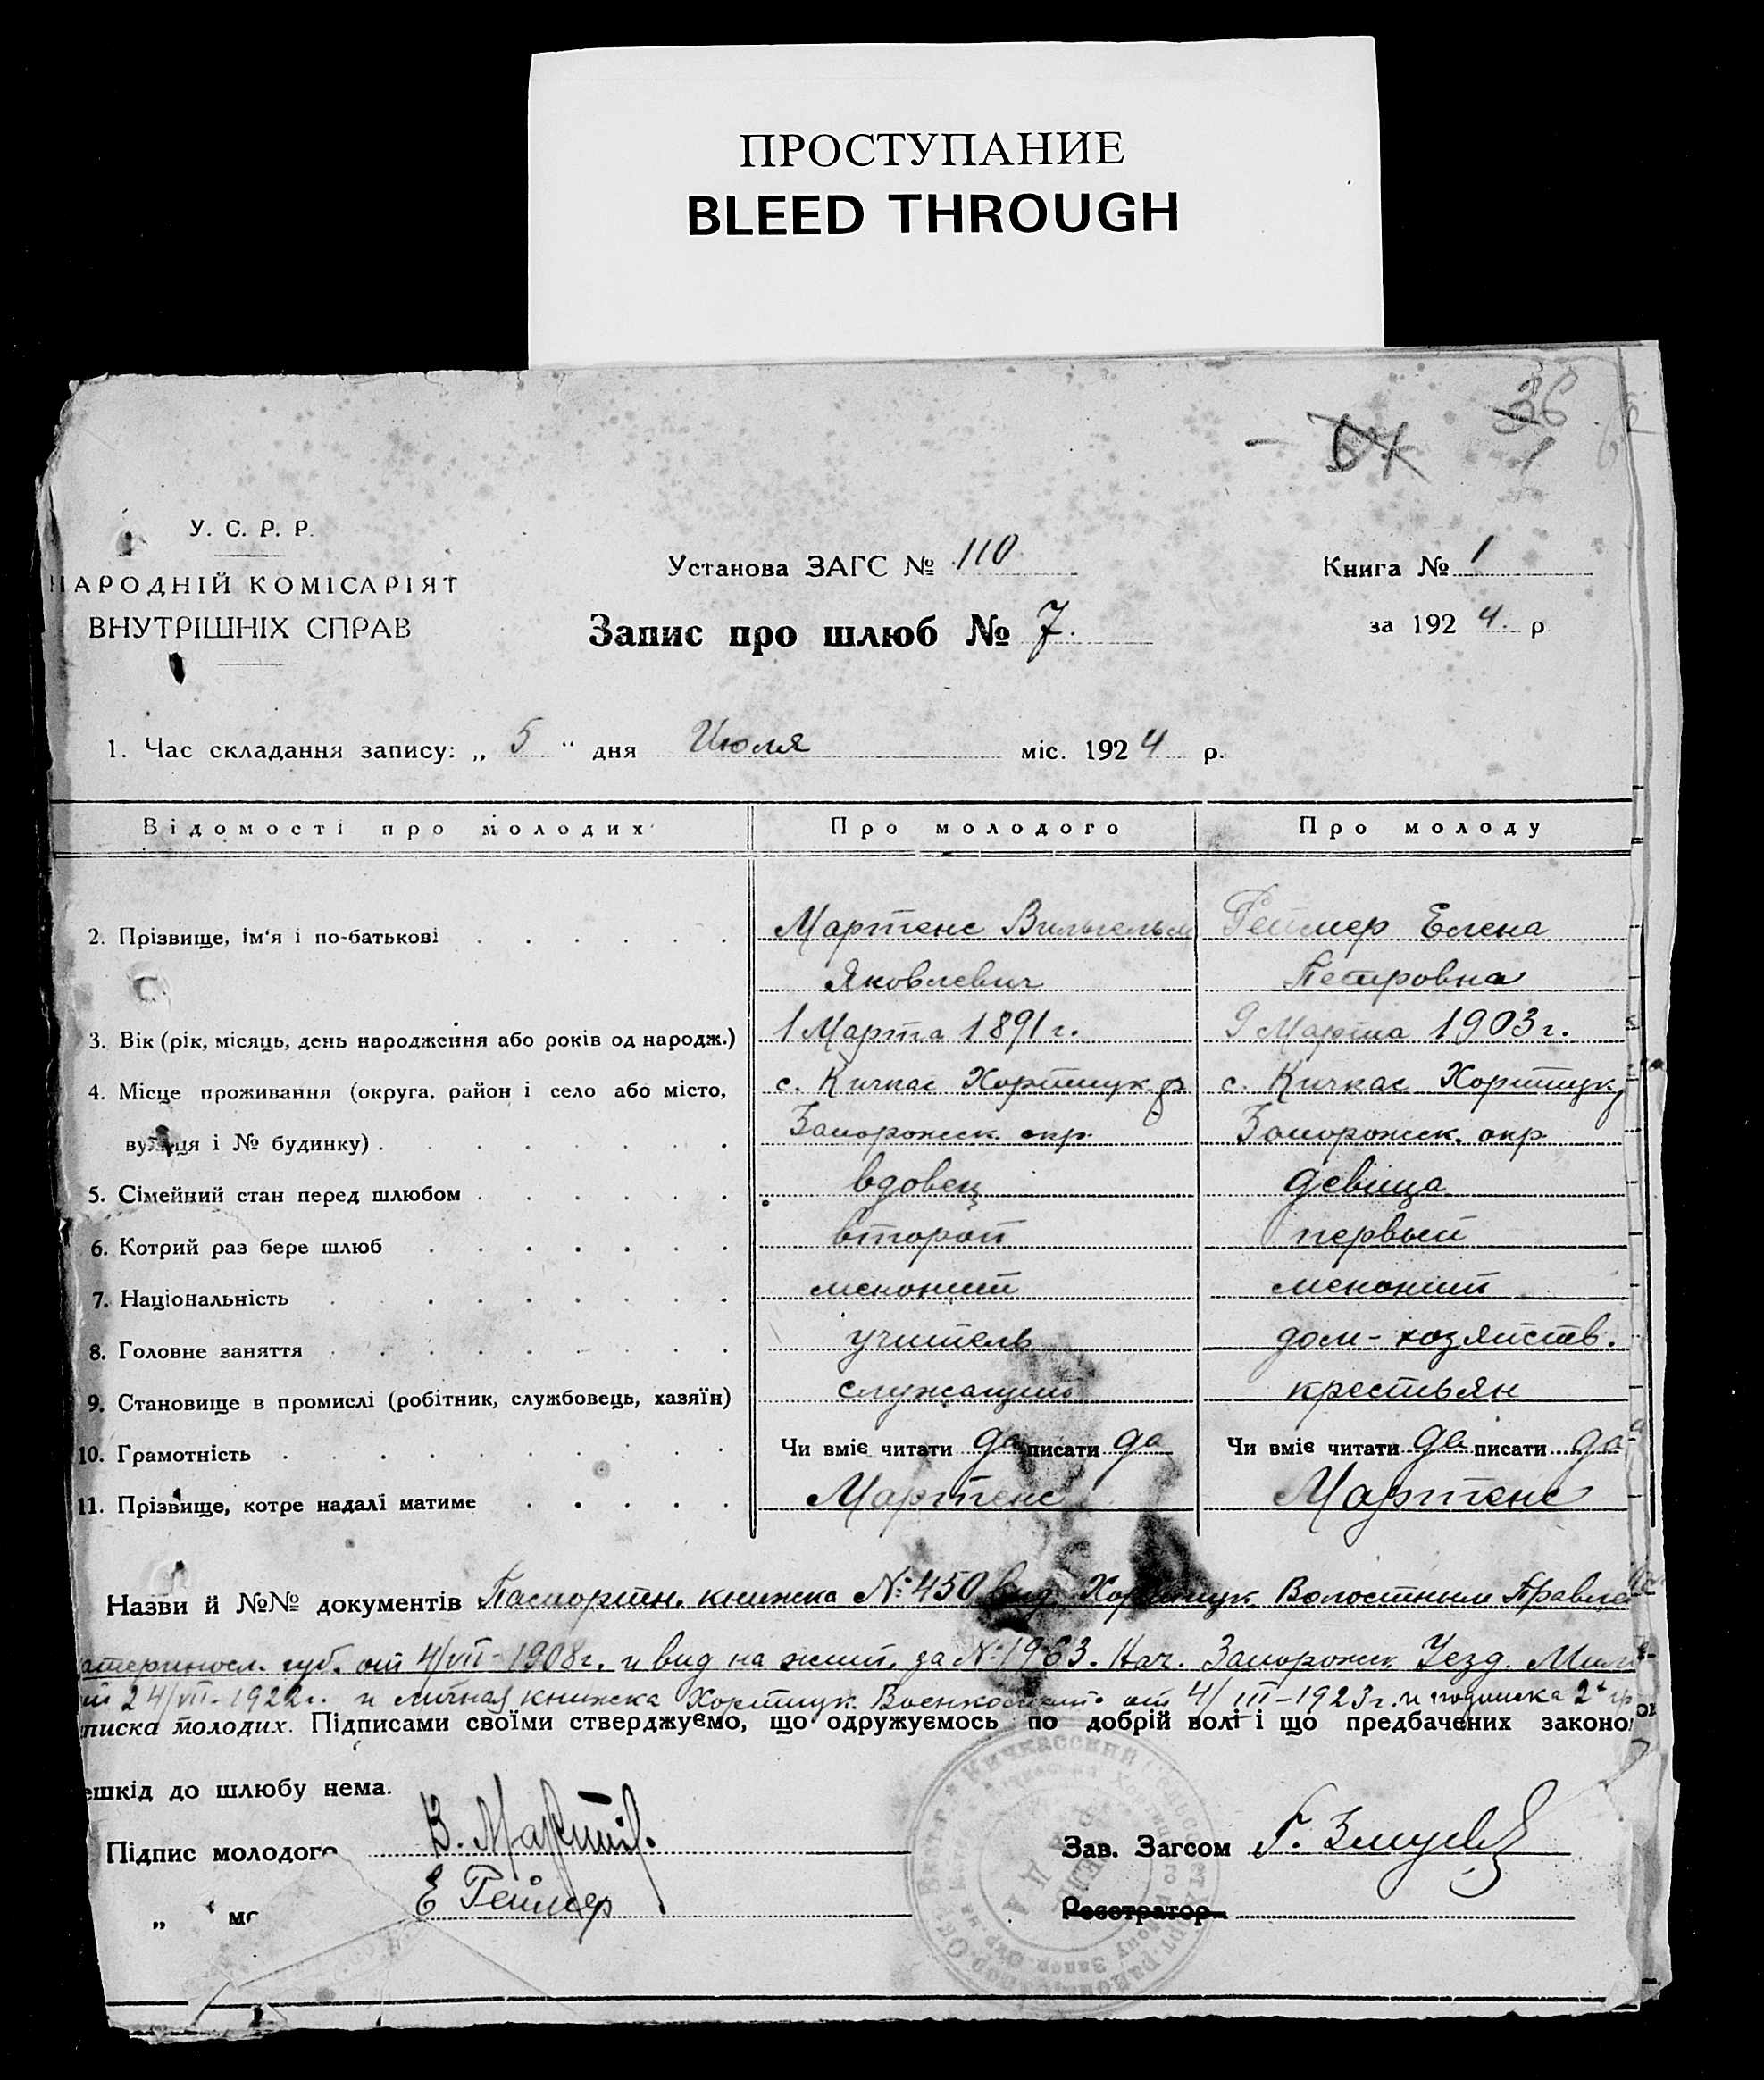 ПРОСТУПАНИЕ
BLEED THROUGH
36
67
1
У. С. Р. Р.
НАРОДНІЙ КОМІСАРІЯТ
ВНУТРІШНІХ СПРАВ
Установа ЗАГС № 110
Книга № 1
Запис про шлюб № 7.
за 1924. р
1. Час складання запису: „ 5 “ дня Июля міс. 1924 р.
Відомості про молодих Про молодого Про молоду
2. Прізвище, ім‘я і по-батькові Мартенс Вильгельм Реймер Елена
Яковлевич Петровна
3. Вік (рік, місяць, день народження або років од народж.) 1 Марта 1891 г. 9 Марта 1903 г.
4. Місце проживання (округа, район і село або місто, с. Кичкас Хортицк. р. с. Кичкас Хортицк.
вулиця і № будинку) Запорожск. окр. Запорожск. окр.
5. Сімейний стан перед шлюбом вдовец девица
6. Котрий раз бере шлюб второй первый
7. Національність менонит менонит
8. Головне заняття учитель дом-хозяйств.
9. Становище в промислі (робітник, службовець, хазяїн) служащий крестьян
10. Грамотність Чи вміє читати да писати да Чи вміє читати да писати да
11. Прізвище, котре надалі матиме Мартенс Мартенс
Назви й №№ документів Паспортн. книжка №450 выд. Хортицк. Волостным Правле
атериносл. губ. от 4/VII-1908г. и вид на жит. за №1963. Нач. Запорожск Уезд. Мил
24/VII-1922г. и личная книжка Хортицк. от 4/III-1923г. и подписка 2х гр
писка молодих. Підписами своїми стверджуємо, що одружуємось по добрій волі і що предбачених законо
ешкід до шлюбу нема.
Підпис молодого В.
Зав. Загсом Г.
„ мо Е Реймер
Реєстратор